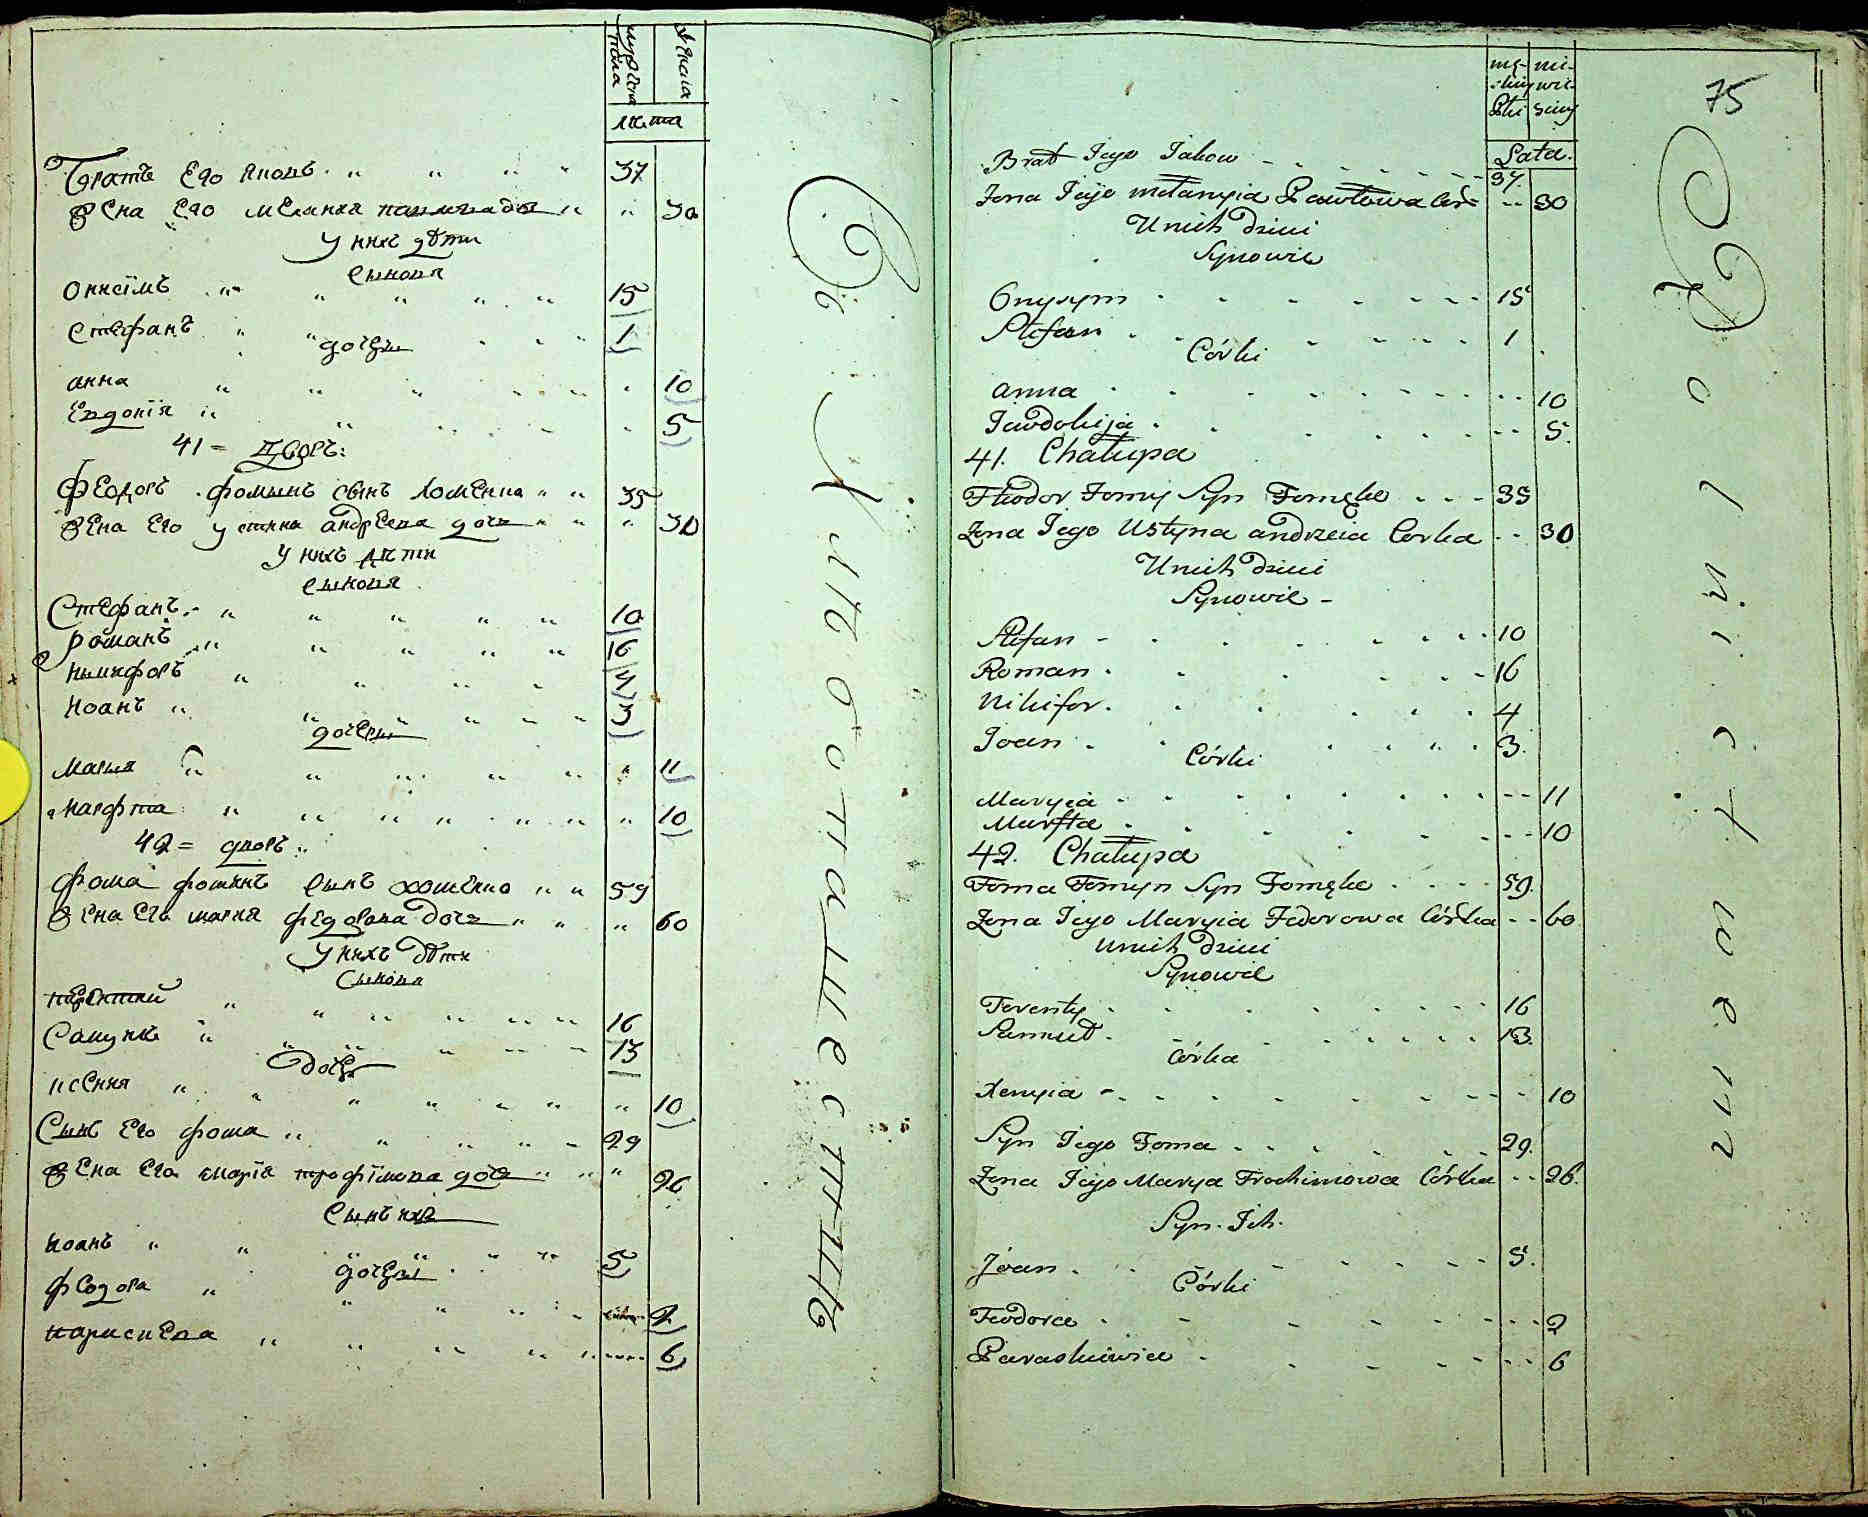 мужска пола
женска
лѣта
Братъ Его Яковъ 37
Жена Его Меланка Павлова дочь 30
У нихъ дѣти
Сыновя
Онисімъ 15
Стефанъ 1
дочери
анна 10
Евдокія 5
41 = Дворъ:
Феодоръ фоминъ сынъ хоменко 35
Жена Его устина андреева дочь 30
У нихъ дѣти
сыновя
Стефанъ 10
Романъ 16
Никифоръ 4
Иоанъ 3
дочери
Мария 11
Марфта 10
42 = дворъ:
Фома фоминъ сынъ хоменко 59
Жена Его мария федорова дочь 60
У нихъ дѣти
Сыновя
терентий 16
Самуилъ 13
дочь
ксения 10
Сынъ Его фома 29
Жена Его марія трофімова дочь 26
Сынъ ихъ
Иоанъ 5
дочери
Феодора 2
парискева 6
Сѣ Липоваџесниць
męskiey płci
niewieściey
Lata.
75
Brat Jego Jakow 37.
Żona Jeijo Mełanyia Pawłowa Cór: 30
U nich dzieci
Synowie
Onysym 15
Stefan 1
Córki
anna 10
Jewdokija 5.
41. Chałupa
Fheodor Fomy Syn Fomęko 35
Żona Jego Ustyna andrzeia Corka 30
U nich dzieci
Synowie
Stefan 10
Roman 16
Nikifor 4
Joan 3.
Córki
Maryia 11
Marfta 10
42. Chałupa
Foma Fomyn Syn Fomęko 59.
Żona Jego Maryia Fedorowa Córka 60
U nich dzieci
Synowie
Terenty 16
Samuel 13.
Córka
Xenyia 10
Syn Jego Foma 29.
Żona Jeijo Marya Trochimowa Córka 26.
Syn Ich.
Joan 5.
Córki
Feodora 2
Paraskiewia 6